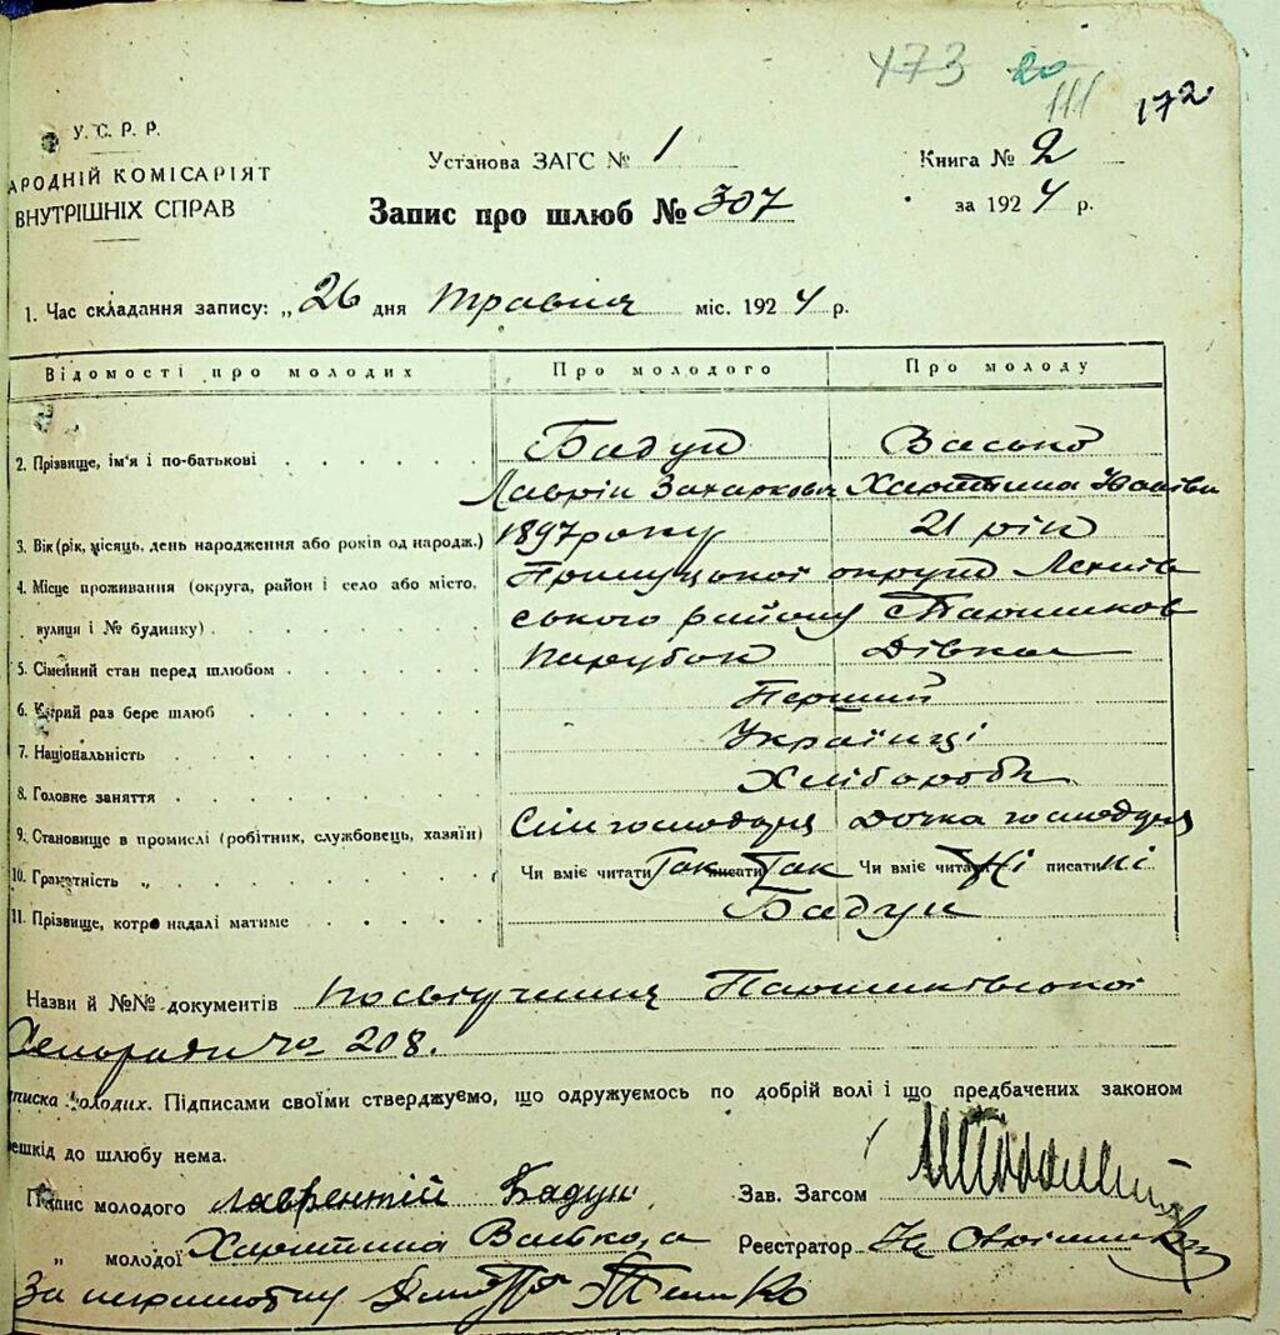 473 20 111 172
У.С.Р.Р.
АРОДНІЙ КОМІСАРІЯТ
ВНУТРІШНІХ СПРАВ
Установа ЗАГС № 1
Книга № 2
Запис про шлюб № 307
за 1924 р.
1. Час складання запису: „26 дня травня міс. 1924 р.
Відомості про молодих Про молодого Про молоду
2. Прізвище, ім'я і по-батькові Бадун Васько
Лаврін Захаркович Харитина Іванівн
3. Вік (рік, місяць, день народження або років од народж.) 1897 року 21 рік
4. Місце проживання (округа, район і село або місто, Прилуцької округи
вулиця і № будинку) ського району
5. Сімейний стан перед шлюбом Парубок Дівка
6. Котрий раз бере шлюб Перший
7. Національність Українці
8. Головне заняття Хлібороби
9. Становище в промислі (робітник, службовець, хазяїн) Син господаря Дочка господаря
10. Грамотність „ Чи вміє читати Так писати Так Чи вміє читати Ні писати Ні
11. Прізвище, котре надалі матиме Бадун
Назви й №№ документів посвідчення
Сельради № 208.
писка молодих. Підписами своїми стверджуємо, що одружуємось по добрій волі і що предбачених законом
ешкід до шлюбу нема.
Підпис молодого Лаврентій Бадун Зав. Загсом
„ молодої Харитина Васько Реєстратор
За неграмотну